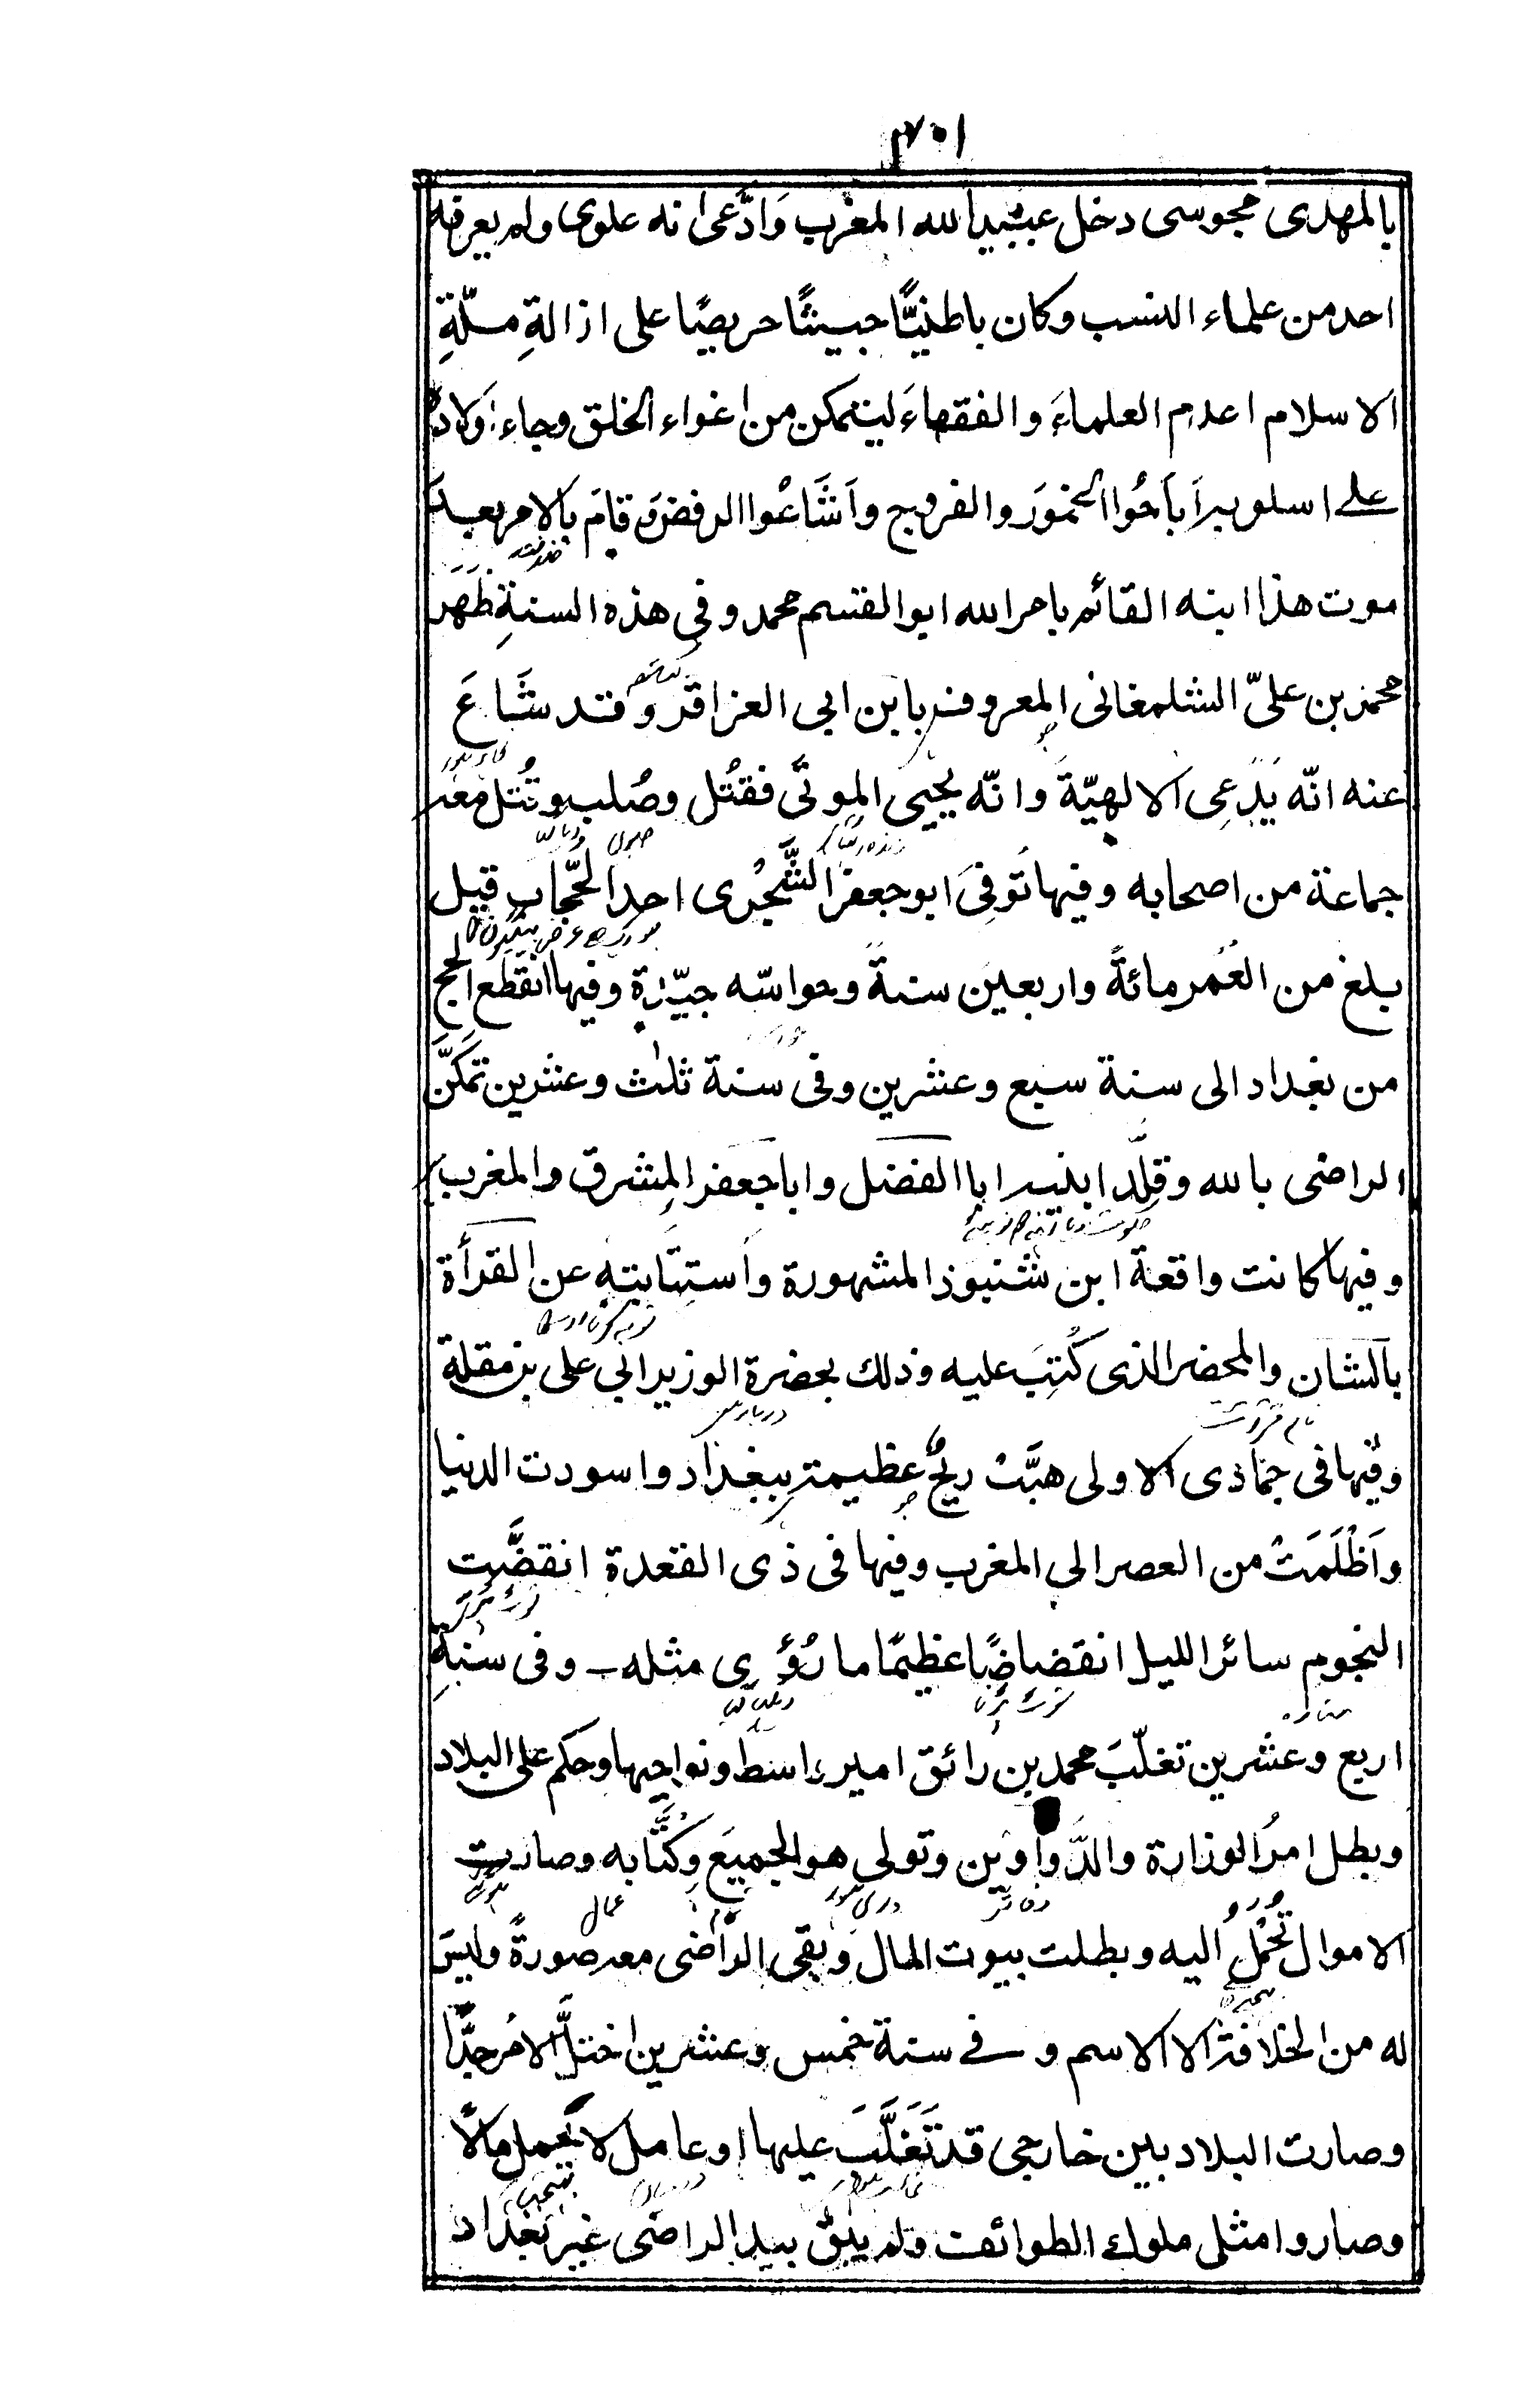 بالمهدى مجوسى دخل عبيد الله المغرب وَادَّعى انه علوى ولم يعرفه
احد من علماء النسب وكان باطنيًّا خبيثًا حريصًا على ازالةِ ملّةِ
الاسلام اعدم العلماءَ والفقهاءَ ليتمكن من اغواء الخلق وجاء اَولاده
على اسلوبه اَباَحُوا الخمورَ والفروج واَشَاعُوا الرفض وقامَ بالامر بعد
موت هذا ابنه القائم بامر الله ابو القسم محمد وفى هذه السنةِ ظَهَر
محمد بن علىّ الشلمغانى المعروف بابن ابى العزاقر وقد شَاعَ
عنه انّه يَدَّعِى الالهيّةَ وانّه يحيى الموتٰى فقُتُل وصُلب وقُتل معه
جماعة من اصحابه وفيها تُوفّىَ ابو جعفر الشَّجُرى احد الحُجّاب قيل
بلغ من العُمر مائةً واربعين سنةً وحواسّه جيّدة وفيها انقطع الحج
من بغداد الى سنة سبع وعشرين وفى سنة ثلٰث وعشرين تمكَّنَ
الراضى بالله وقلّد ابنيه ابا الفضل وابا جعفر المشرق والمغرب
وفيها كانت واقعة ابن شنبوذ المشهورة واَستِتَابتِهٖ عن القرأة
بالشان والمحضر الذى كُتِبَ عليه وذلك بحضرة الوزير ابى على بن مقلة
وفيها فى جمادى الاولى هبَّتْ ريحٌ عظيمة ببغداد واسودت الدنيا
واَظْلَمَتْ من العصر الى المغرب وفيها فى ذى القعدة انقضَّت
النجوم سائر الليل انقضاضًا عظيمًا ما رُؤِى مثله ـ وفى سنةِ
اربع وعشرين تغلّبَ محمد بن رائق امير واسط ونواحيها وحكم على البلاد
وبطل امرُ الوزارة والدَّواوين وتولى هو الجميعَ وكُتَّابه وصارت
الاموال تُحْمَلُ اليه وبطلت بيوت المال وبقى الراضى معه صورةً وليسَ
له من الخلافة الا الاسم وفى سنة خمس وعشرين اختلَّ الامُر جدًّا
وصارت البلاد بين خارجى قد تَغَلَّبَ عليها او عامل لا يحمل مالًا
وصاروا مثل ملوك الطوائف ولم يبق بيد الراضى غير بغداد